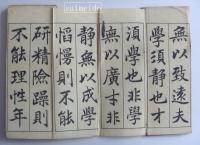 無以致遠夫
學須靜也才
須學也非學
無以廣才非
靜無以成學
慆慢則不能
研精險躁則
不能理性年